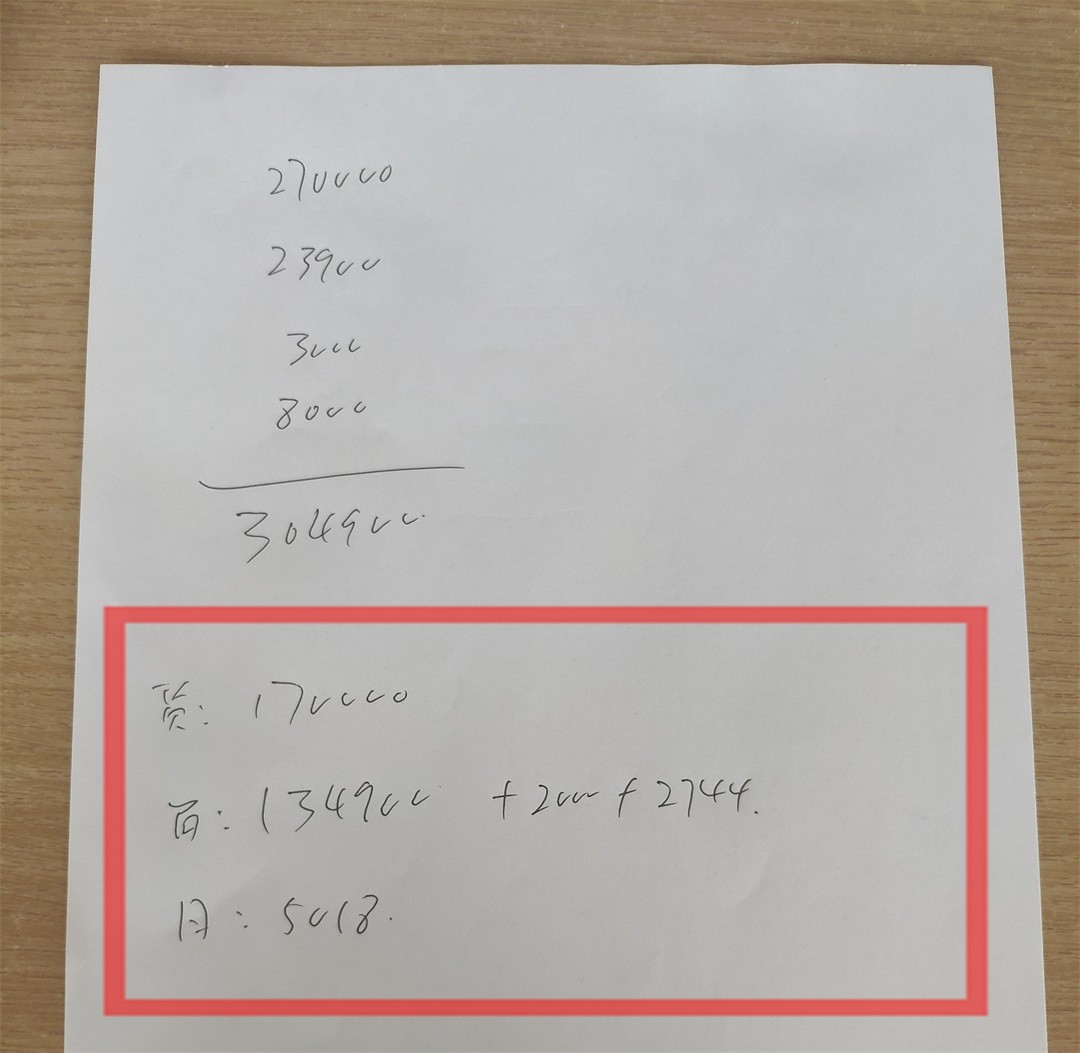 270000
23900
3000
8000
304900.
贷:170000
首:134900 +2000+2744.
月:5018.